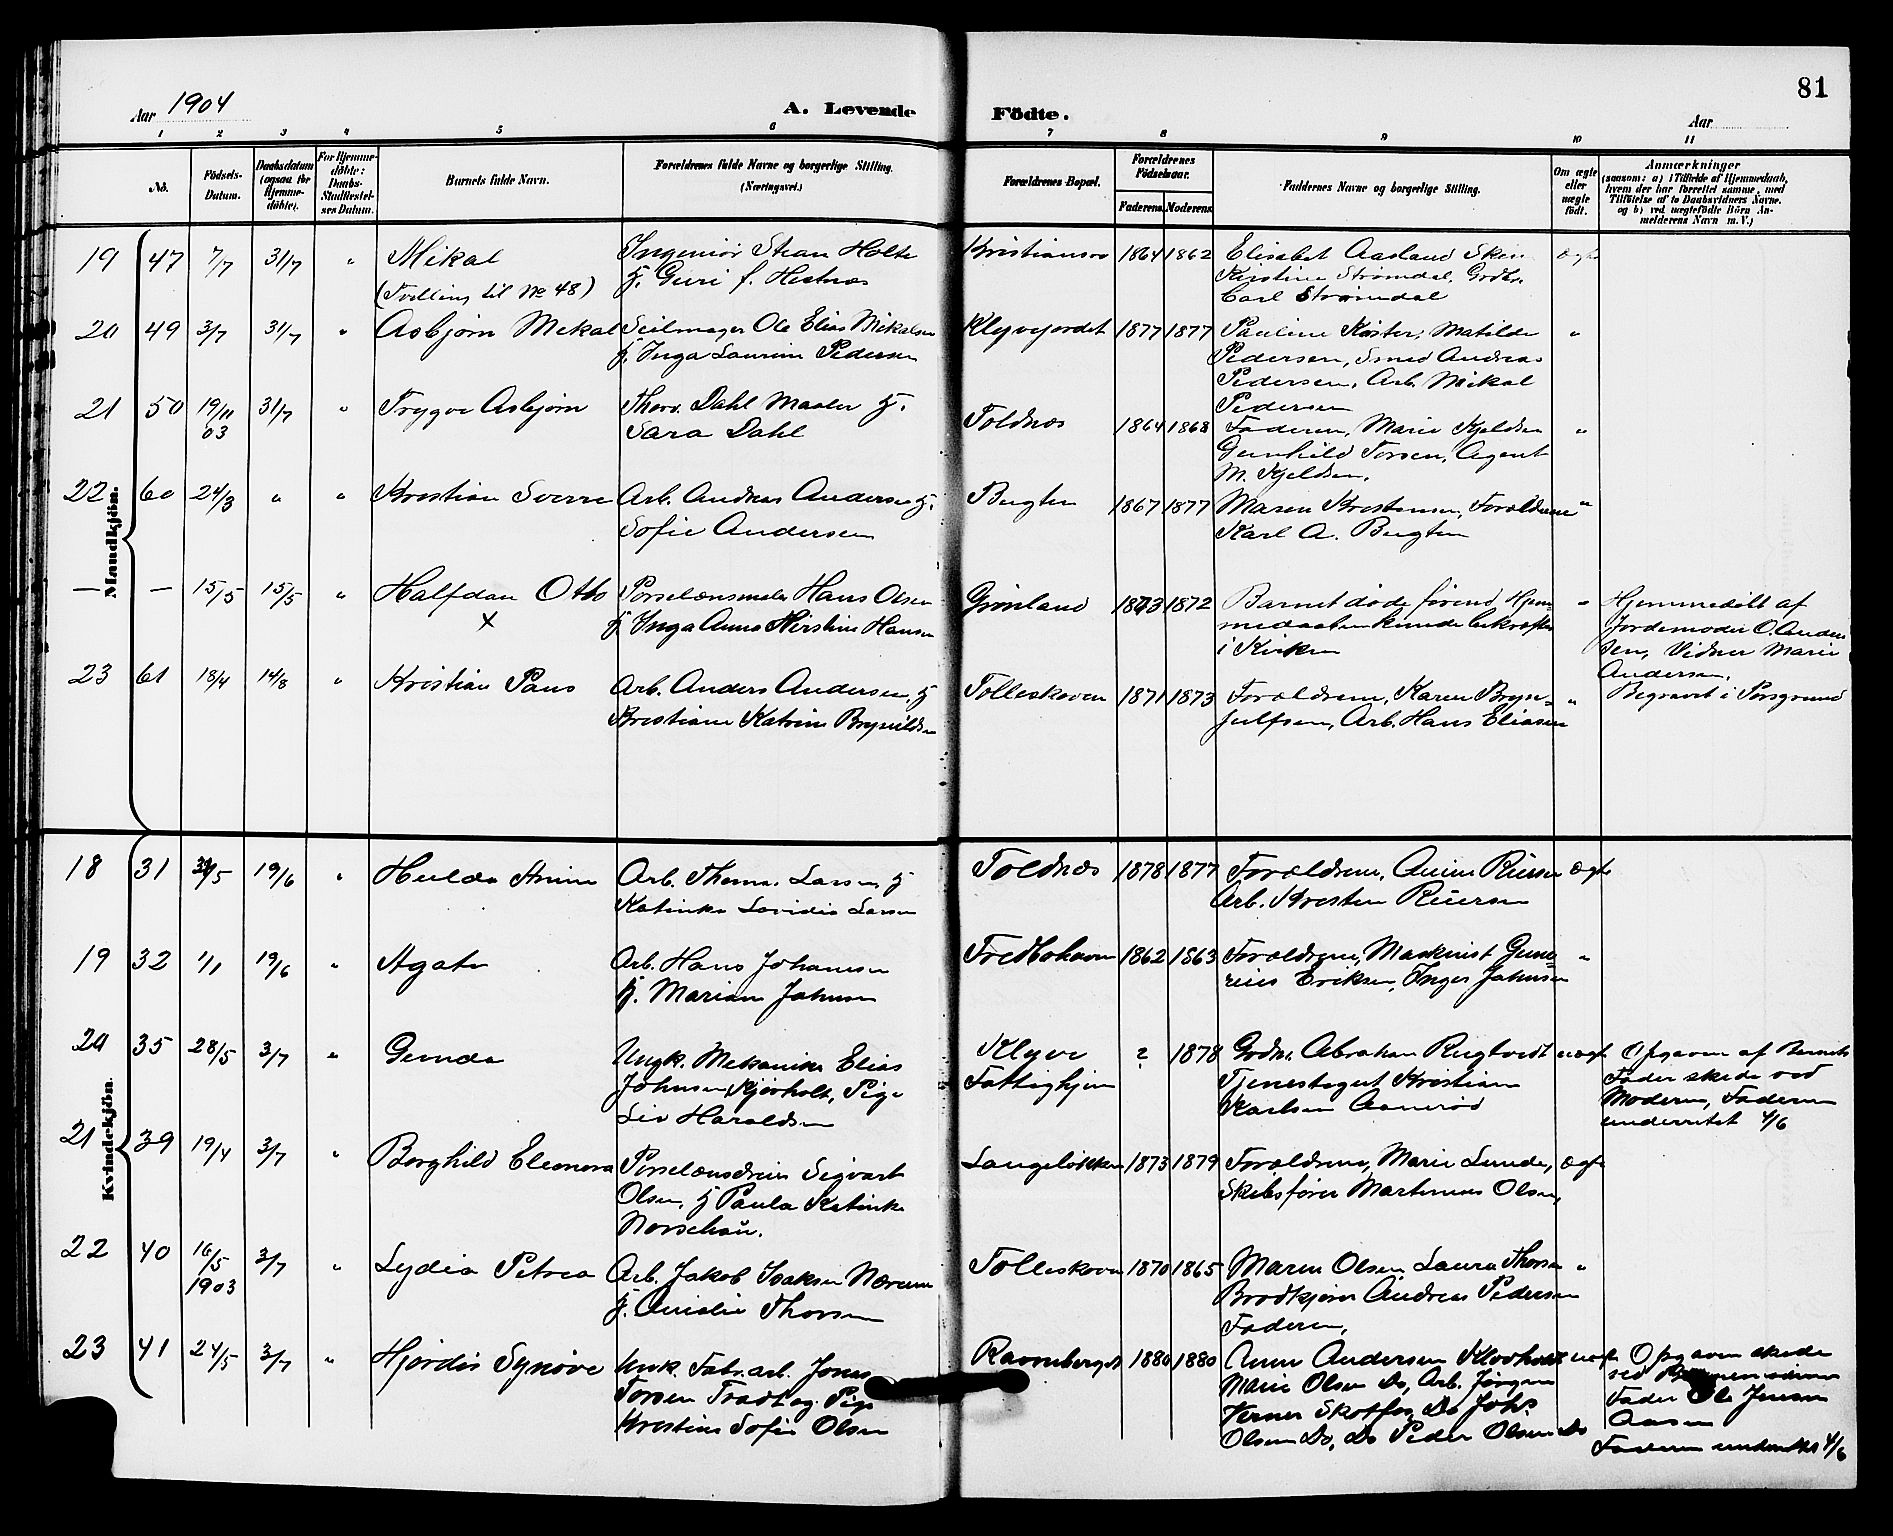 81
Aar 1904
A. Levende Födte.
Aar
1 2 3 4 5 6 7 8 9 10 11
No.
Födsels-Datum.
Daabsdatum (ogsaa for Hjemme-döbte).
For Hjemme-döbte: Daabs-Stadfæstel-ses Datum.
Barnets fulde Navn.
Forældrenes fulde Navne og borgerlige Stilling.
(Næringsvei.)
Forældrenes Bopæl.
Forældrenes Födselsaar.
Faderens Moderens
Faddernes Navne og borgerlige Stilling.
Om ægte eller uægte födt.
Anmærkninger
(saasom: a) i Tilfælde af Hjemmedaab,
hvem der har forrettet samme, med
Tilföielse af to Daabsvidners Navne.
og b) ved uægtefödte Börn An-
melderens Navn m. V.)
Mandkjön.
19 47 7/7 31/7 " Mikal
(Tvilling til No 48)
Ingeniör Stian Holte
Hj. Guri f. Hestnæs
1864 1862
Elisabet Aasland Skien
Kirstine Strømdal, Grdbr.
Carl Strømdal
Ægte
20 49 3/7 31/7 " Asbjörn Mekal
Seilmager Ole Elias Mikalsen
Hj. Inga Laurine Pedersen
Klyvejordet 1877 1877
Pauline Köster, Matilde
Pedersen, Smed Andreas
Pedersen, Arb. Mikal
Pedersen
"
21 50 19/11 03 31/7 " Trygve Asbjörn
Thorv. Dahl Maaler Hj.
Sara Dahl
Toldnæs 1864 1868
Faderen, Marie Kjeldsen
Gunhild Torsen, Agent
M. Kjeldsen.
"
22 60 24/3 " " Kristian Sverre
Arb. Andreas Andersen Hj.
Sofie Andersen
Bugten 1867 1877
Maren Kristensen, Forældrene
Karl A. Bugten
"
— — 15/5 15/5 " Halfdan Otto
x
Porselænsmaler Hans Olsen
Hj. Inga Anna Kirstine Hansen
Grönland 1873 1872
Barnet döde förend Hjem-
medaaben kunde bekræftes
i Kirken
"
Hjemmedöbt af
Jordemoder O. Ander
sen, Vidner Marie
Andersen.
Begravet i Porsgrund
23 61 18/4 14/8 " Kristian Paus
Arb. Anders Andersen, Hj
Kristiane Katrine Brynildsen
Tolleskoven 1871 1873
Forældrene, Karen Bryn-
julfsen, Arb. Hans Eliasen
"
Kvindekjön.
18 31 /5 19/6 " Hulda Anine
Arb. Thomas Larsen Hj
Katinka Lovidia Larsen
Toldnæs 1878 1877
Forældrene, Anine Riiersen
Arb. Kristen Riiersen
Ægte
19 32 1/1 19/6 " Agate
Arb. Hans Johannesen
Hj. Mariane Johnsen
1862 1863
Forældrene, Maskinist Gune-
rius Eriksen, Inger Johnsen
"
20 35 28/5 3/7 " Gunda
Ungk. Mekaniker Elias
Johnsen Kjörholt, Pige
Liv Haraldsen
Klyve
Fattighjem
? 1878
Grdbr. Abraham Rugtvedt
Tjenestegut Kristian
Karlsen Aanerød
uægte
Opgaven af Barnets
Fader skede ved
Moderen, Faderen
underrettet 4/6
21 39 19/4 3/7 " Borghild Eleonora
Porselænsdreier Sigvart
Olsen, Hj Paula Katinka
Norschau.
Langeløkken 1873 1879
Forældrene, Marie Lunde,
Skibsfører Martinius Olsen,
Ægte
22 40 16/5 1903 3/7 " Lydia Petrea
Arb. Jakob Isaksen Nærum
Hj. Amalie Thorsen
Tolleskoven 1870 1865
Maren Olsen, Laura Thorsen
Brødkjører Andreas Pedersen
Faderen,
"
23 41 24/5 3/7 " Hjördis Synöve
Unk. Fabr. arb. Jens
Torsen Tradt og Pige
Kristine Sofie Olsen
Ravneberget 1880 1880
Anne Andersen Klovholt
Marie Olsen Do, Arb. Jørgen
Verner Skotfos, Do Johs
Olsen Do, Do Peder Olsen Do
uægte
Opgaven skede
ved
Fader Ole Jensen
Aasen
Faderen underrettet 4/6